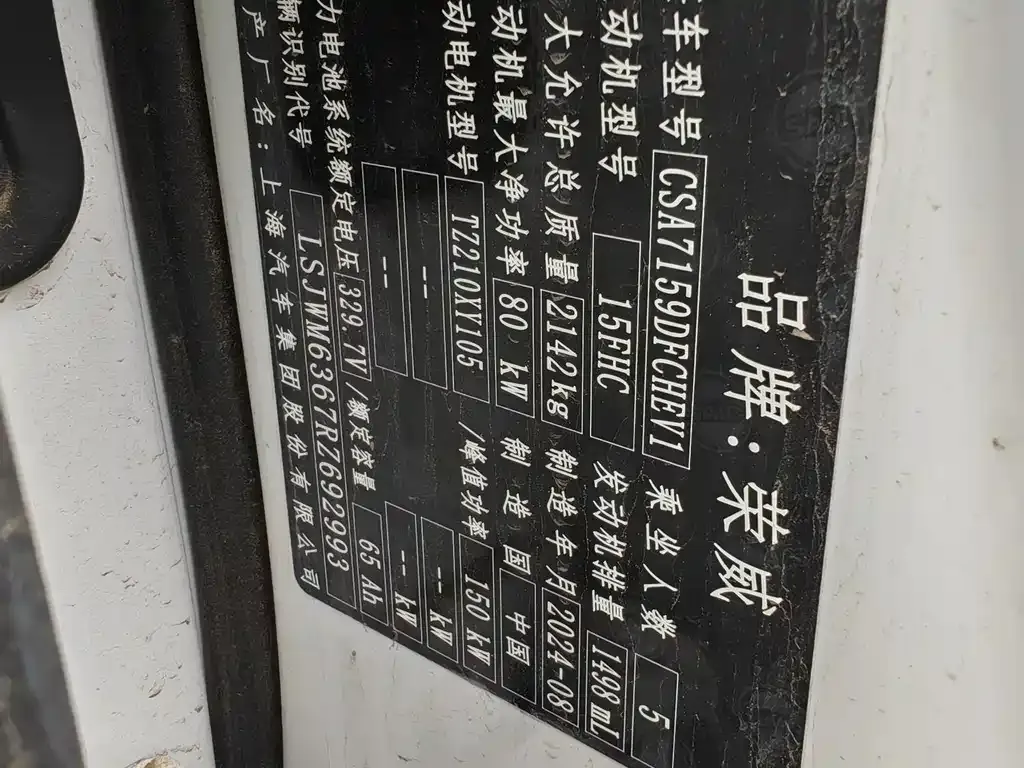 品牌:荣威
车型号 CSA7159DFCHEV1 乘坐人数 5
动机型号 15FHC 发动机排量 1498 mL
大允许总质量 2142kg 制造年月 2024-08
动机最大净功率 80 kW 制造国 中国
动电机型号 TZ210XY105 /峰值功率 150 kW
-- -- kW
-- -- kW
力电池系统额定电压 329.7V /额定容量 65 Ah
辆识别代号 LSJWM6367RZ692993
产厂名:上海汽车集团股份有限公司